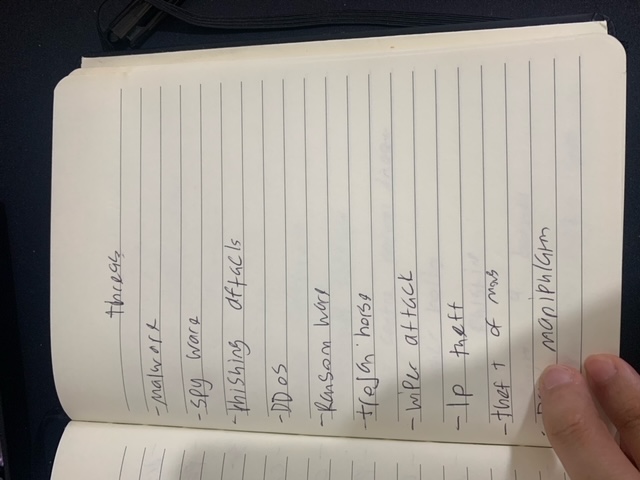 threas
-malware
-spy ware
-Phishing attacks
-DDoS
-Ransom ware
-trojan horse
-wiper attack
-Ip theft
-theft of
manipulation